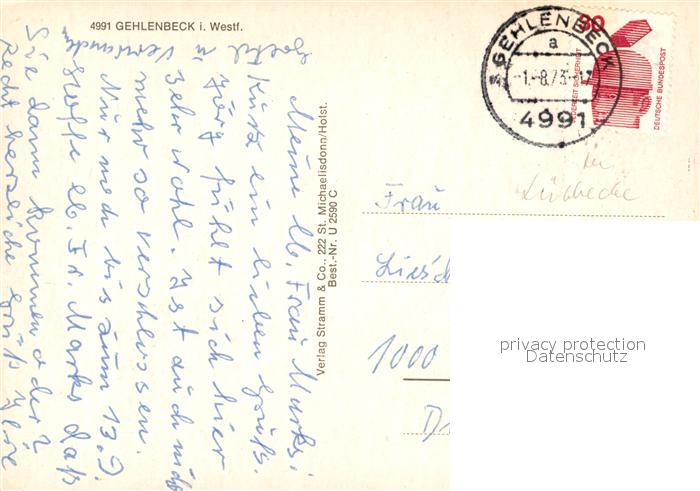 4991 GEHLENBECK i. Westf.
Meine lb. Frau Marks!
Kurz ein lieben Gruß.
Jörg fühlt sich hier
sehr wohl. Ist auch nicht
mehr so verschlossen.
Nur noch bis zum 13.
Hoffe lb. Fr. Marks daß
Sie dann kommen oder?
Recht herzliche Grüße Ihre
u. Verwandte
Verlag Stramm & Co., 222 St. Michaelisdonn/Holst.
Best.-Nr. U 2590 C
GEHLENBECK
a
-1.-8.73-17
4991
DEUTSCHE BUNDESPOST
in
Lübbecke
Frau
1000
privacy protection
Datenschutz